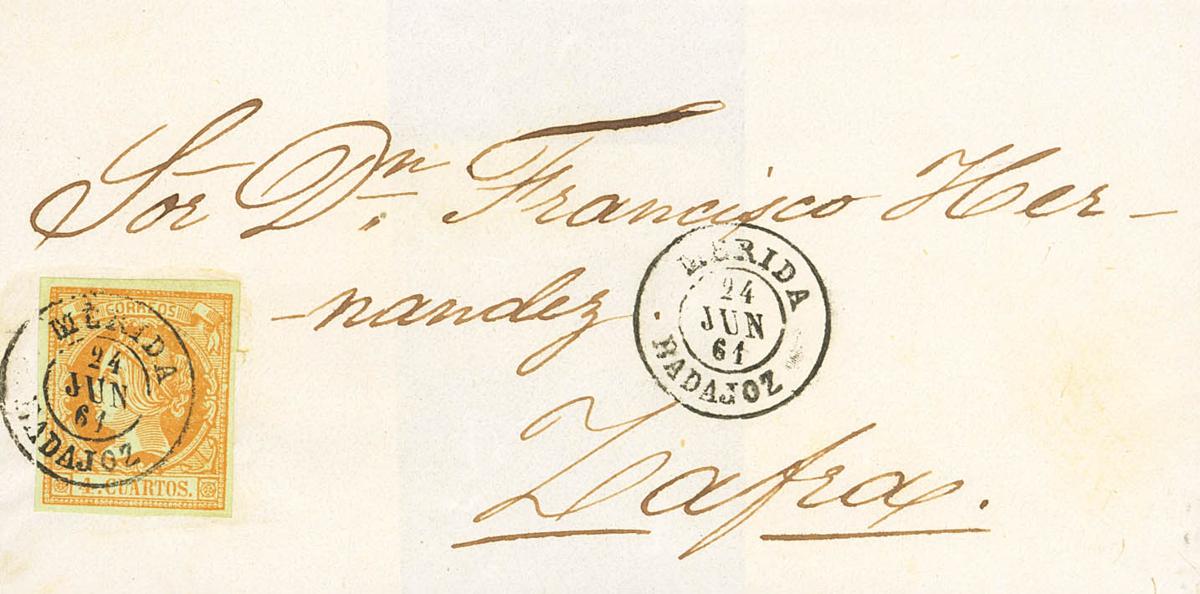 Sor Dn. Francisco Her-
-nandez
Zafra.
MÉRIDA
24
JUN
61
BADAJOZ
CORREOS
MÉRIDA
24
JUN
61
BADAJOZ
4. CUARTOS.